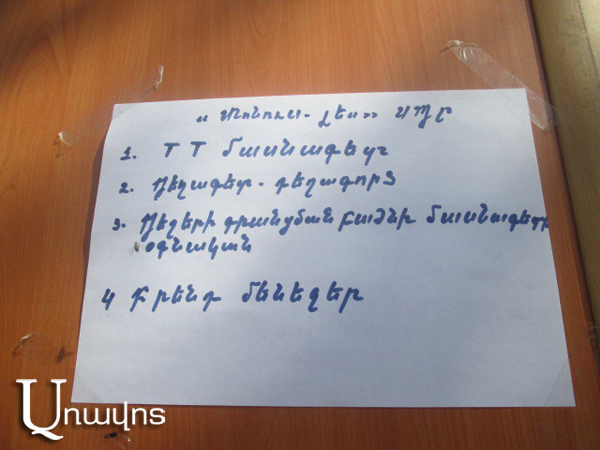 «Տոնուս- Լես»» ՍՊԸ
1. TT մասնագետ
2. Դեղագետ - դեղագործ
3. Դեղերի գրանցման բաժնի մասնագետի
օգնական
4 Բրենդ մենեջեր
Առավոտ